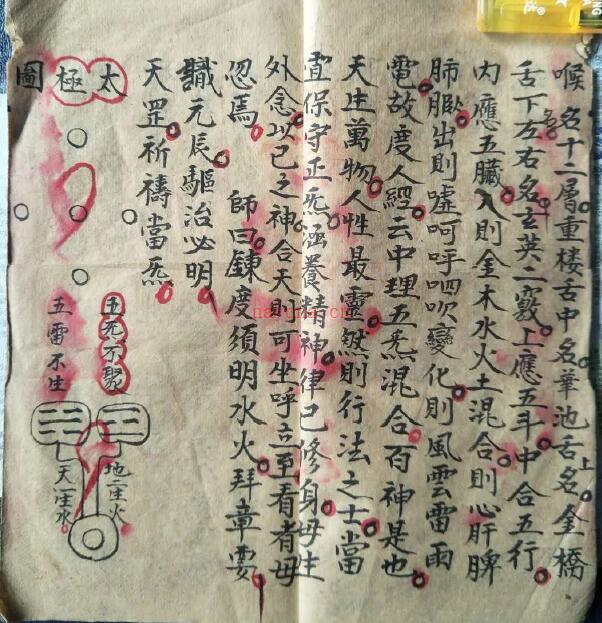 喉名十二層重楼舌中名華池舌上名金橋
舌下左右名玄英二竅上應五斗中合五行
内應五臟入則金木水火土混合則心肝脾
肺腎出則嘘呵呼呬吹變化則風雲雷雨
電故度人經云中理五炁混合百神是也
天生萬物人性最靈然則行法之士當
宜保守正炁涵養精神律己修身毋生
外念以己之神合天則可坐呼立至看者毋
忽焉 師曰鍊度須明水火拜章要
識元辰驅治必明
天罡祈禱當炁
太極圖
五炁不聚
五雷不生
地二生火
天一生水